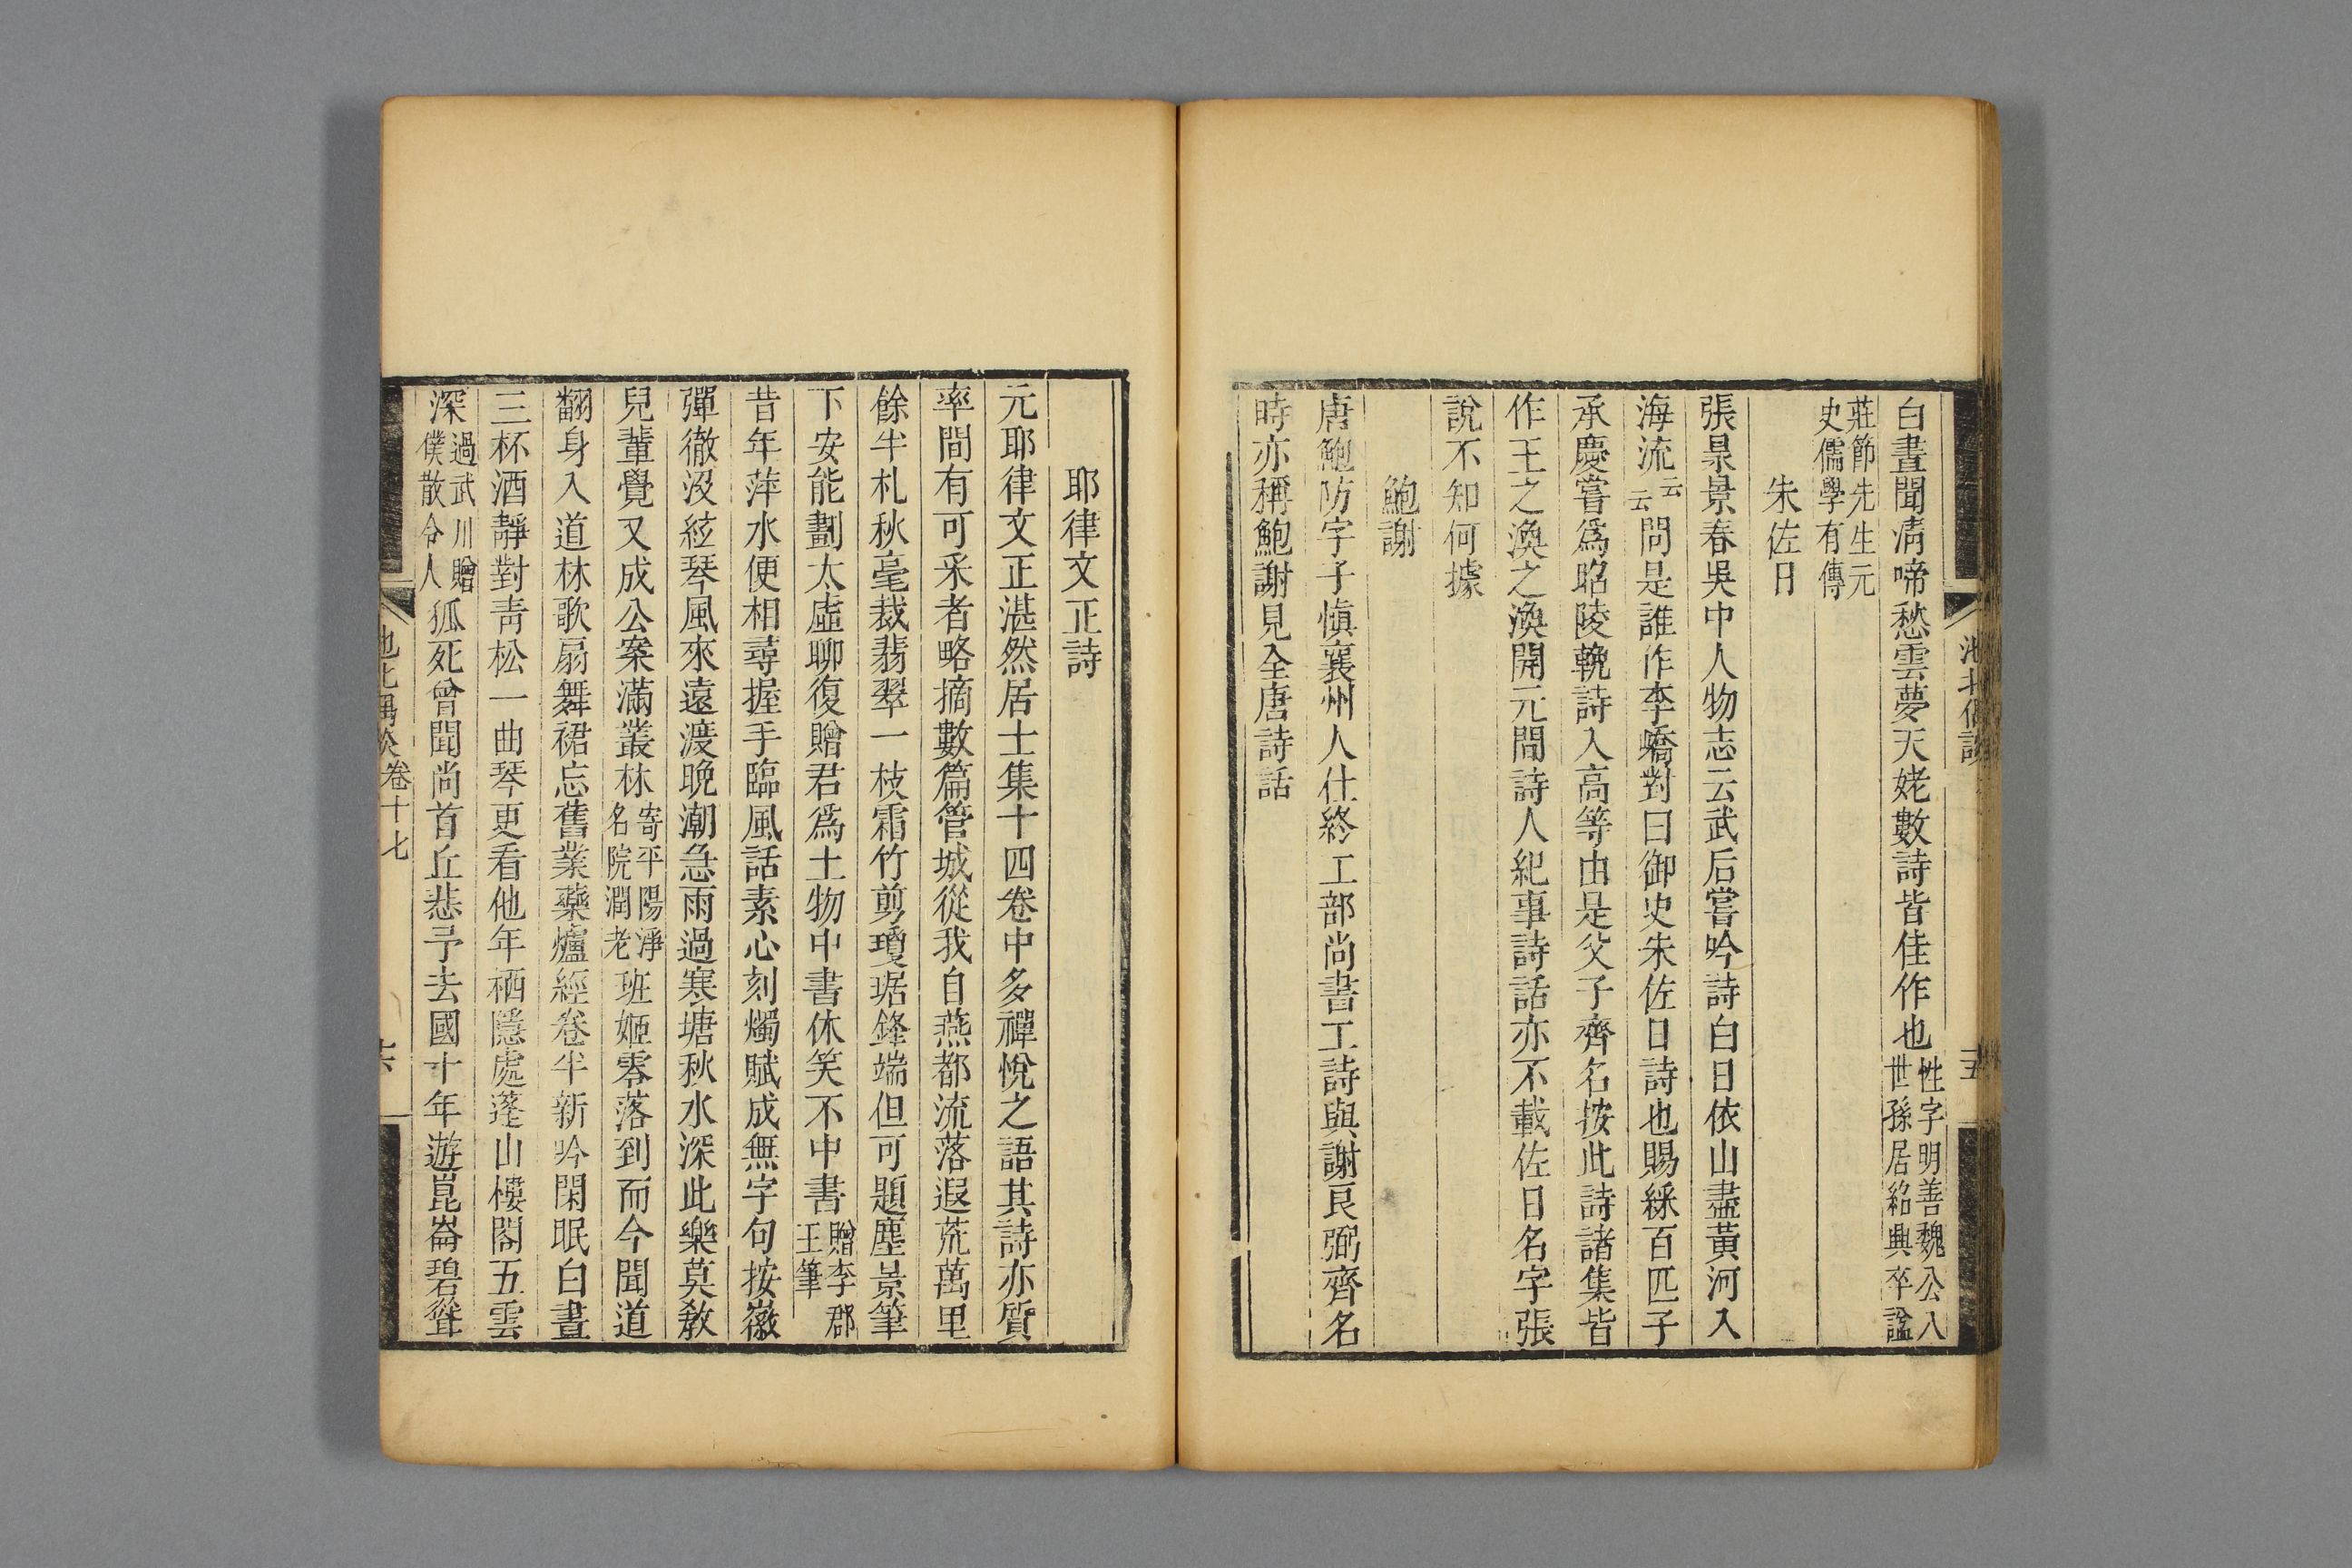 池北偶談
五
白晝聞清啼愁雲夢天姥數詩皆佳作也性字明善魏公八世孫居紹興卒諡
莊節先生元史儒學有傳
朱佐日
張㬅景春吳中人物志云武后嘗吟詩白日依山盡黃河入
海流云云問是誰作李嶠對曰御史朱佐日詩也賜綵百匹子
承慶嘗爲昭陵輓詩入高等由是父子齊名按此詩諸集皆
作王之渙之渙開元間詩人紀事詩話亦不載佐日名字張
說不知何據
鮑謝
唐鮑防字子愼襄州人仕終工部尚書工詩與謝良弼齊名
時亦稱鮑謝見全唐詩話
耶律文正詩
元耶律文正湛然居士集十四卷中多禪悅之語其詩亦質
率間有可采者略摘數篇管城從我自燕都流落遐荒萬里
餘半札秋毫裁翡翠一枝霜竹剪瓊琚鋒端但可題塵景筆
下安能劃太虛聊復贈君爲土物中書休笑不中書贈李郡王筆
昔年萍水便相尋握手臨風話素心刻燭賦成無字句按徽
彈徹沒絃琴風來遠渡晚潮急雨過寒塘秋水深此樂莫敎
兒輩覺又成公案滿叢林寄平陽淨名院潤老班姬零落到而今聞道
翻身入道林歌扇舞裙忘舊業藥爐經卷半新吟閑眠白晝
三杯酒靜對靑松一曲琴更看他年栖隱處蓬山樓閣五雲
深過武川贈僕散令人狐死曾聞尚首丘悲予去國十年遊崑崙碧聳
池北偶談卷十七
十六